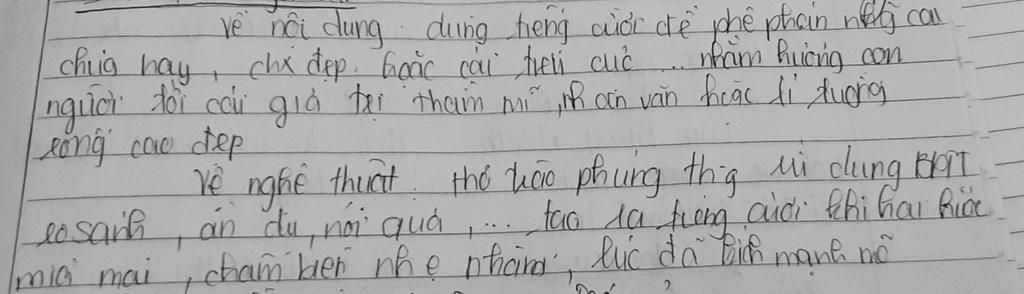 Về nội dung. dùng tiếng cười để phê phán những cái
chưa hay, chx đẹp hoặc cái tiêu cực ... nhằm hướng con
người tới cái giá trị thẩm mĩ, nhân văn hoặc lí tưởng
sống cao đẹp
Về nghệ thuật. thơ trào phúng th~g sử dụng BPTT
so sánh, ẩn dụ, nói quá, ... tạo ra tiếng cười khi hài hước
mỉa mai, châm biếm nhẹ nhàng, lúc đả kích mạnh mẽ